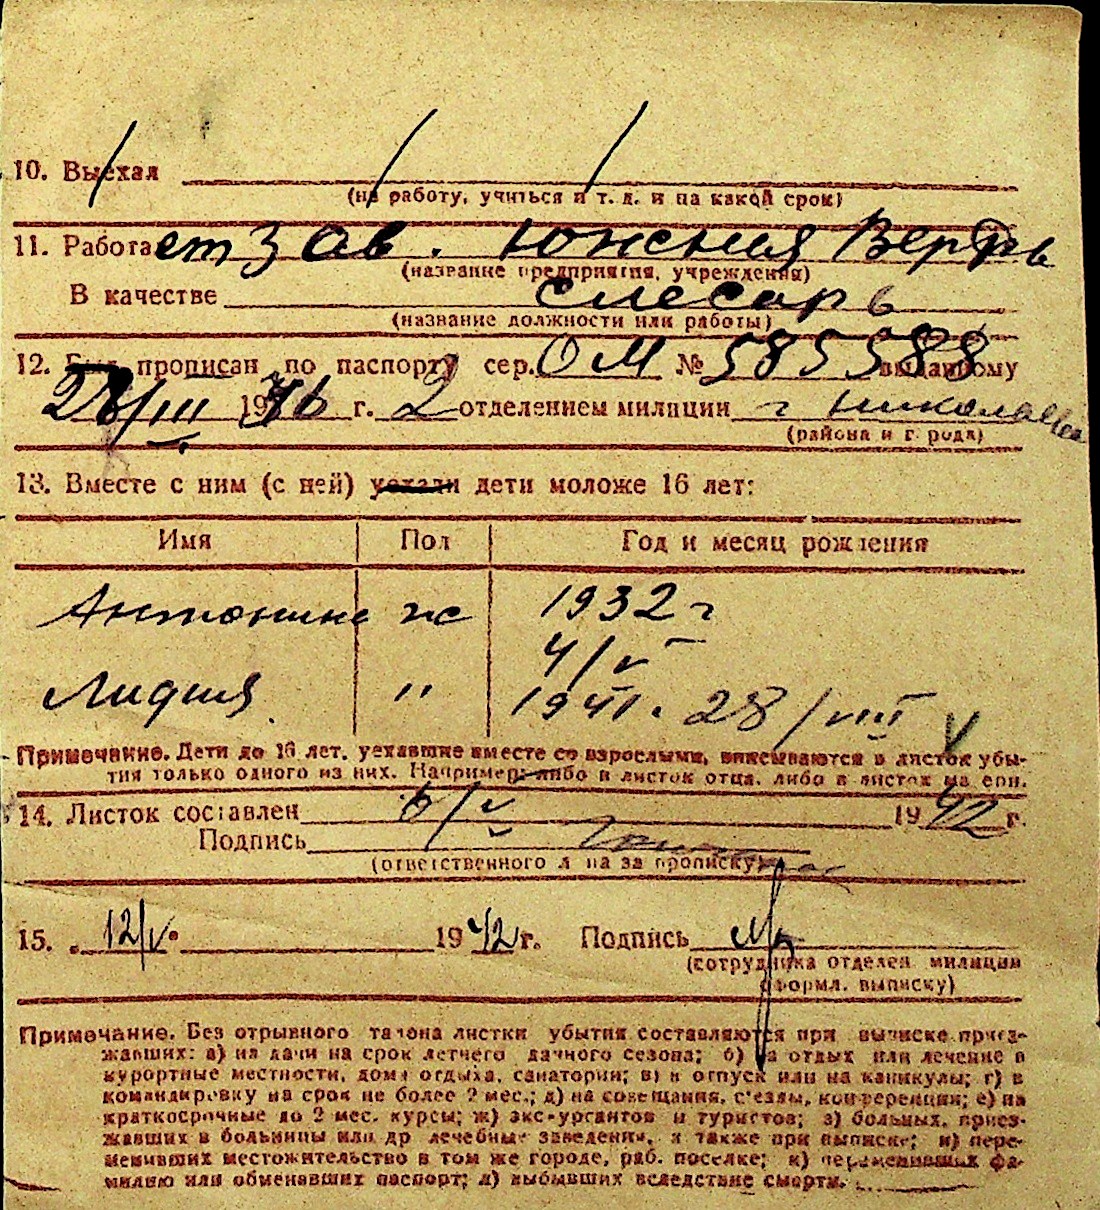 10. Выехал
(на работу, учиться и т. д. и на какой срок)
11. Работает Зав. Южная Верфь
(название предприятия, учреждения)
В качестве слесарь
(название должности или работы)
12. Был прописан по паспорту сер. ОМ № 585588 выданному
28/III 1936 г. 2 отделением милиции г Николаева
(района и города)
13. Вместе с ним (с ней) уехали дети моложе 16 лет:
Имя Пол Год и месяц рождения
Антонина ж 1932 г
4/V
Лидия " 1941. 28/VIII V
Примечание. Дети до 16 лет, уехавшие вместе со взрослыми, вписываются в листок убы-
тия только одного из них. Например: либо в листок отца, либо в листок матери.
14. Листок составлен 6/V 1942 г.
Подпись
(ответственного лица за прописку)
15. 12/V 1942 г. Подпись
(сотрудника отделен. милиции
оформл. выписку)
Примечание. Без отрывного талона листки убытия составляются при выписке приез-
жавших: а) на дачи на срок летнего дачного сезона; б) на отдых или лечение в
курортные местности, дома отдыха, санатории; в) в отпуск или на каникулы; г) в
командировку на срок не более 2 мес.; д) на совещания, съезды, конференции; е) на
краткосрочные до 2 мес. курсы; ж) экскурсантов и туристов; з) больных, приез-
жавших в больницы или др лечебные заведения, а также при выписке; и) пере-
менивших местожительство в том же городе, раб. поселке; к) переменивших фа-
милию или обменявших паспорт; л) выбывших вследствие смерти.